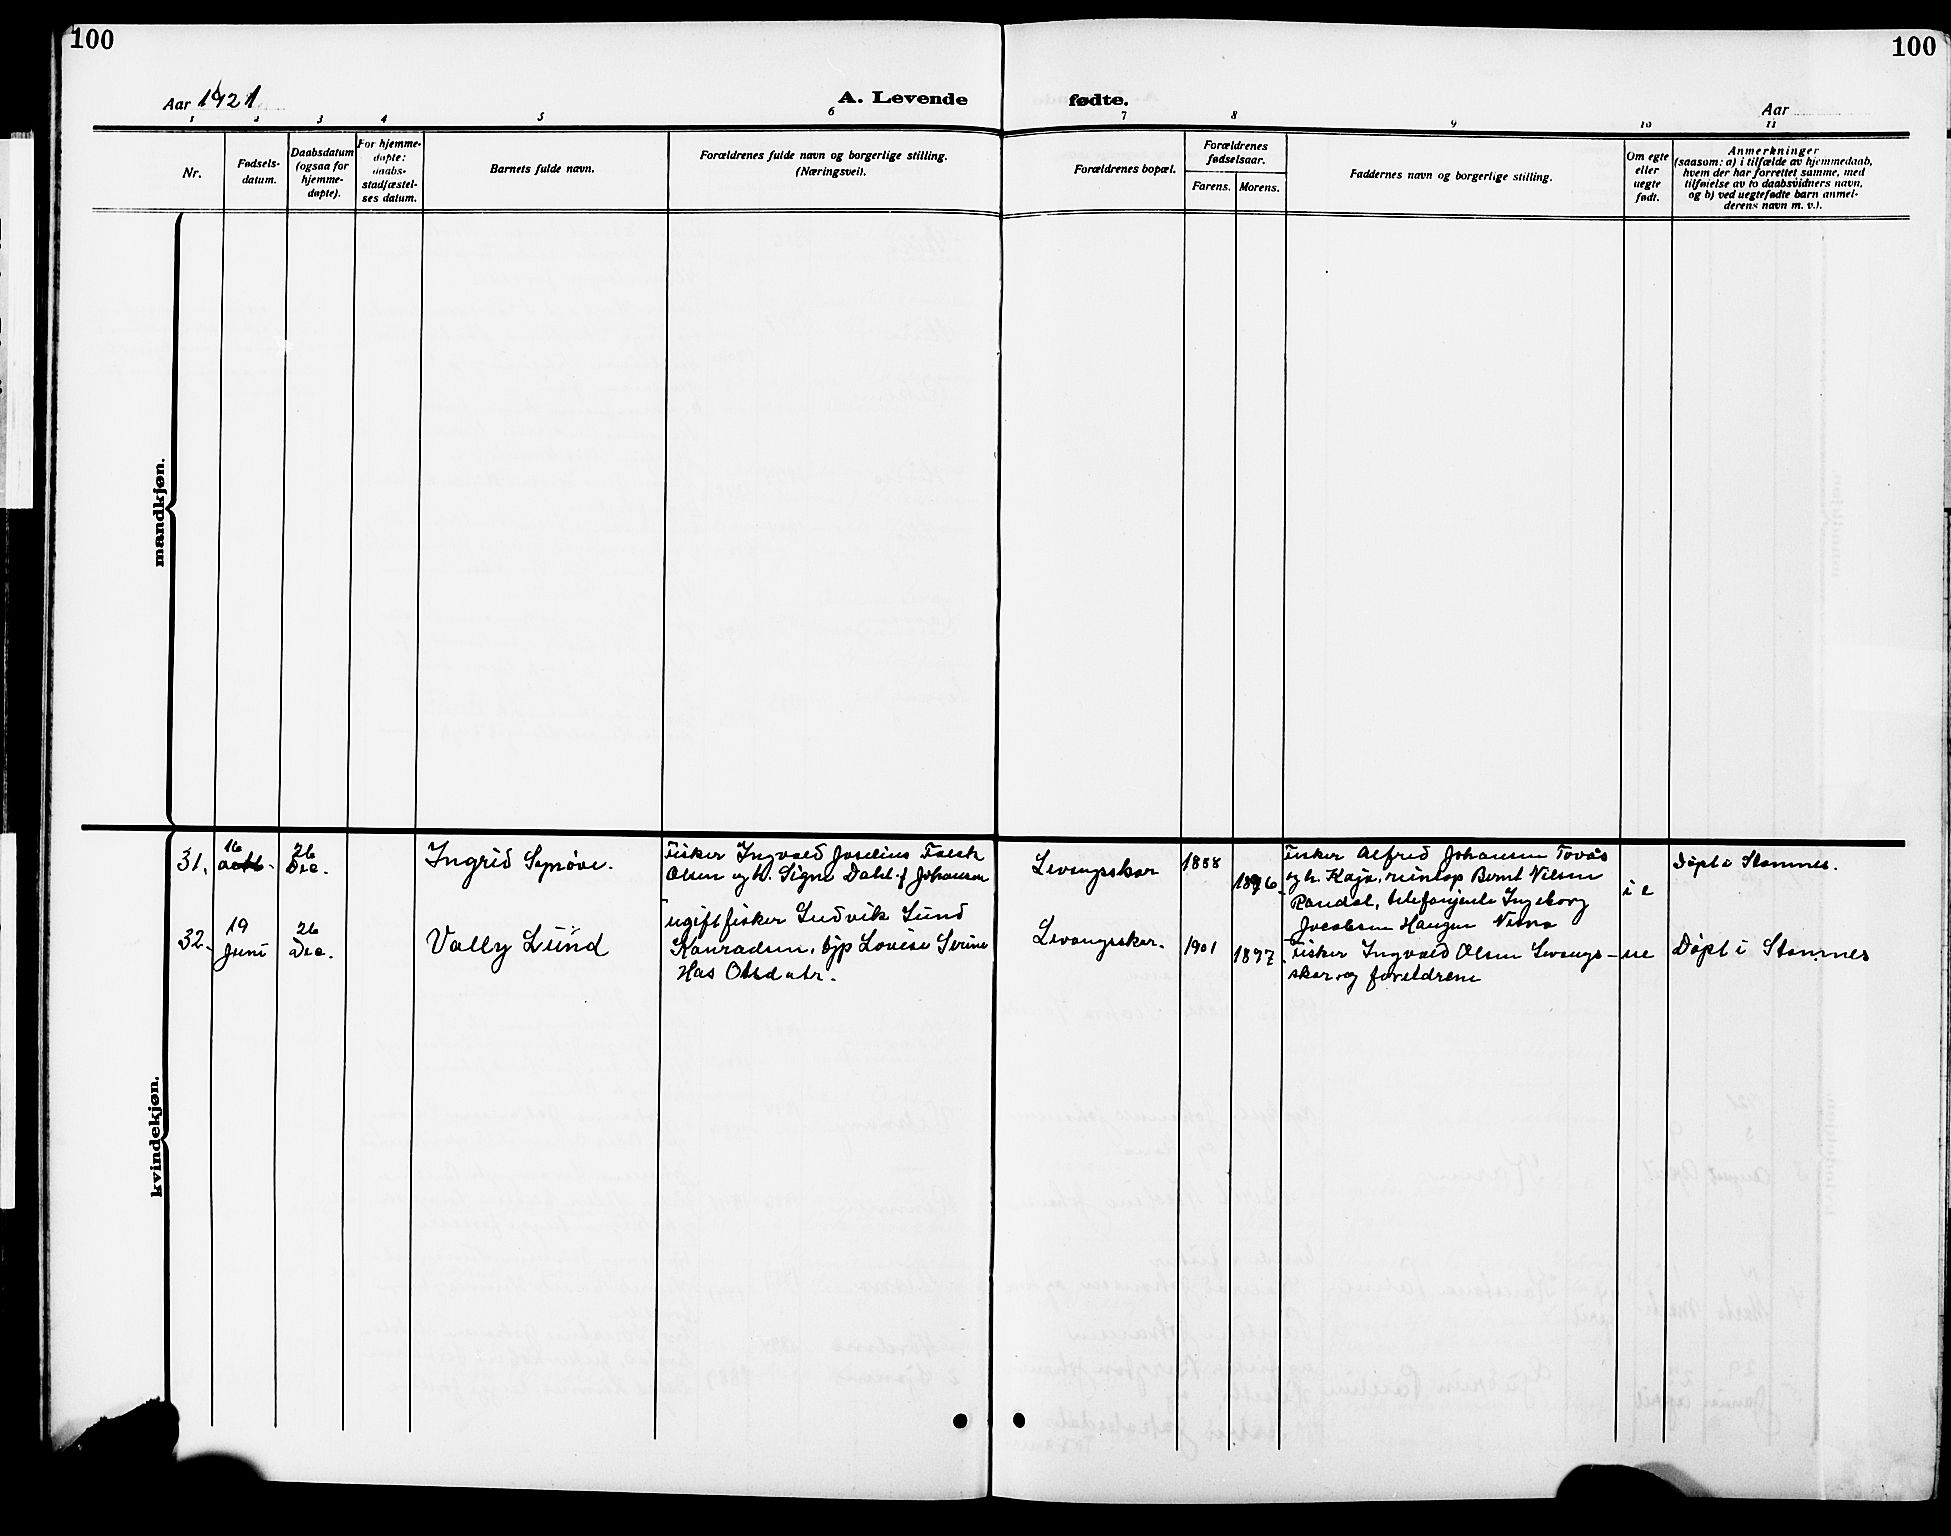 100
100
Aar 1921
A. Levende fødte.
Aar
1 2 3 4 5 6 7 8 9 10 11
Nr.
Fødsels-
datum.
Daabsdatum
(ogsaa for
hjemme-
døpte).
For hjemme-
døpte:
daabs-
stadfæstel-
ses datum.
Barnets fulde navn.
Forældrenes fulde navn og borgerlige stilling.
(Næringsvei).
Forældrenes bopæl.
Forældrenes
fødselsaar.
Farens. Morens.
Faddernes navn og borgerlige stilling.
Om egte
eller
uegte
født.
Anmerkninger
(saasom: a) i tilfælde av hjemmedaab,
hvem der har forrettet samme, med
tilføielse av to daabsvidners navn,
og b) ved uegtefødte barn anmel-
derens navn m. v.).
mandkjøn.
kvindekjøn.
31.
16
26
Dec.
Ingrid Synøve.
Fisker Ingvald Joselius Falck
Olsen og h. Signe Dahl f Johansen
Levangsskar
1888
1896
Fisker Alfred Johansen Tovås
og h. Kaja, Bernt Nilsen
Randal, Ingeborg
Jacobsen Haugen Nesna
e
Døpt i Stamnes.
32.
19
Juni
26
Dec.
Vally Lund
ugift fisker Ludvik Lund
Konradsen, Lovise Serine
Has Olsdatr.
Levangsskar.
1901
1897
Fisker Ingvald Olsen Levangs-
skar og foreldrene
ue
Døpt i Stamnes